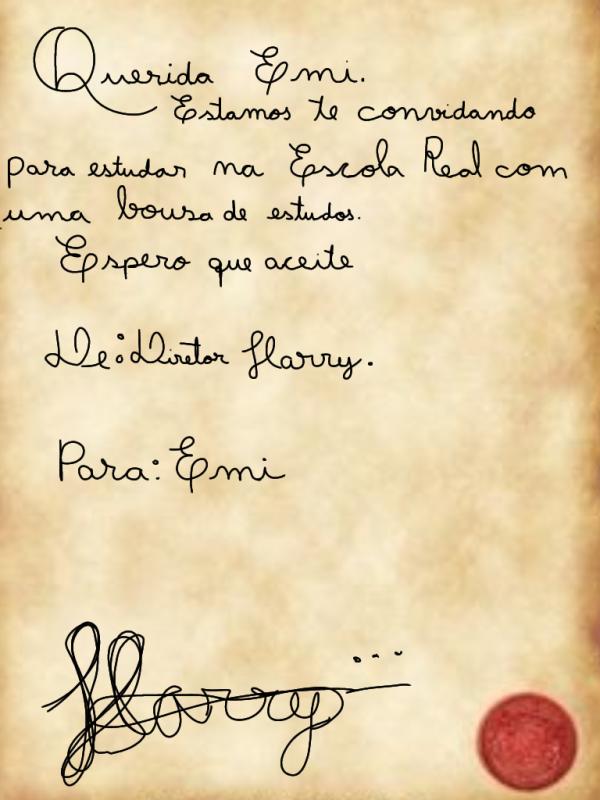 Querida Emi.
Estamos te convidando
para estudar na Escola Real com
uma bousa de estudos.
Espero que aceite
De: Diretor Harry.
Para: Emi
Harry